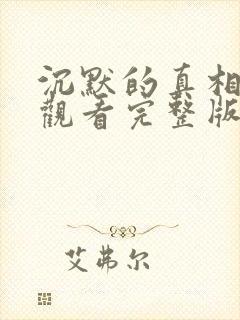 沉默的真相
觀看完整版
艾弗尔